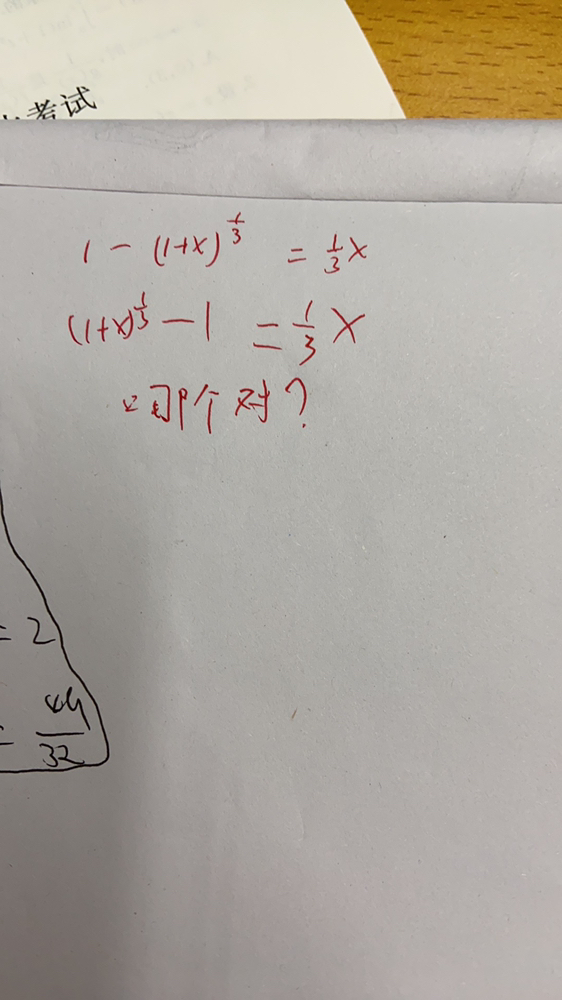 考试
1 - (1+x)^{\frac{1}{3}} = \frac{1}{3}x
(1+x)^{\frac{1}{3}} - 1 = \frac{1}{3}x
哪个对?
= 2